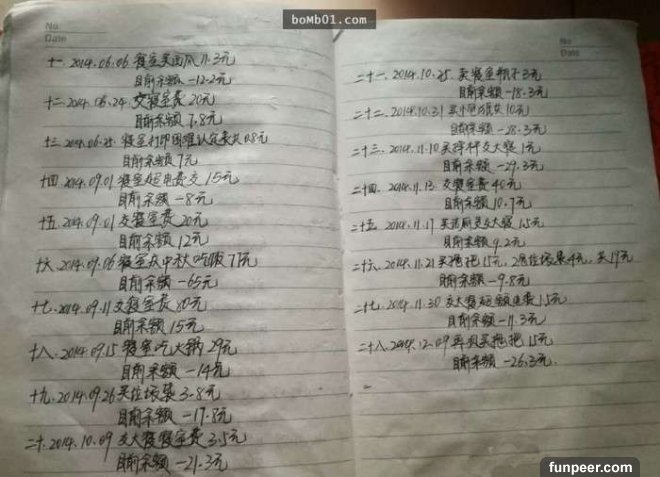 boMb01.com
No.
Date
十一. 2014.06.06 寝室买西瓜 11.3元
目前余额 -12.2元
十二. 2014.06.24. 交寝室费 20元
目前余额 7.8元
十三. 2014.06.25. 寝室打印困难认定表共 0.8元
目前余额 7元
十四. 2014.09.01 寝室短电费交 15元
目前余额 -8元
十五. 2014.09.01 交寝室费 20元
目前余额 12元
十六. 2014.09.06 寝室众中秋吃饭 77元
目前余额 -65元
十七. 2014.09.11 交寝室费 80元
目前余额 15元
十八. 2014.09.15 寝室吃火锅 29元
目前余额 -14元
十九. 2014.09.26 买垃圾袋 3.8元
目前余额 -17.8元
二十. 2014.10.09 交大寝寝室费 3.5元
目前余额 -21.3元
No
Date
二十一. 2014.10.25. 卖寝室瓶子 3元
目前余额 -18.3元
二十二. 2014.10.31 10元
目前余额 -28.3元
二十三. 2014.11.10 交大寝 1元
目前余额 -29.3元
二十四. 2014.11.13. 交寝室费 40元
目前余额 10.7元
二十五. 2014.11.17 交大寝 1.5元
目前余额 9.2元
二十六. 2014.11.21 买拖把 15元, 垃圾袋 4元, 共 19元
目前余额 -9.8元
二十七. 2014.11.30 交大寝短额电费 1.5元
目前余额 -11.3元
二十八. 2014.12.09 再次买拖把 15元
目前余额 -26.3元.
funpeer.com